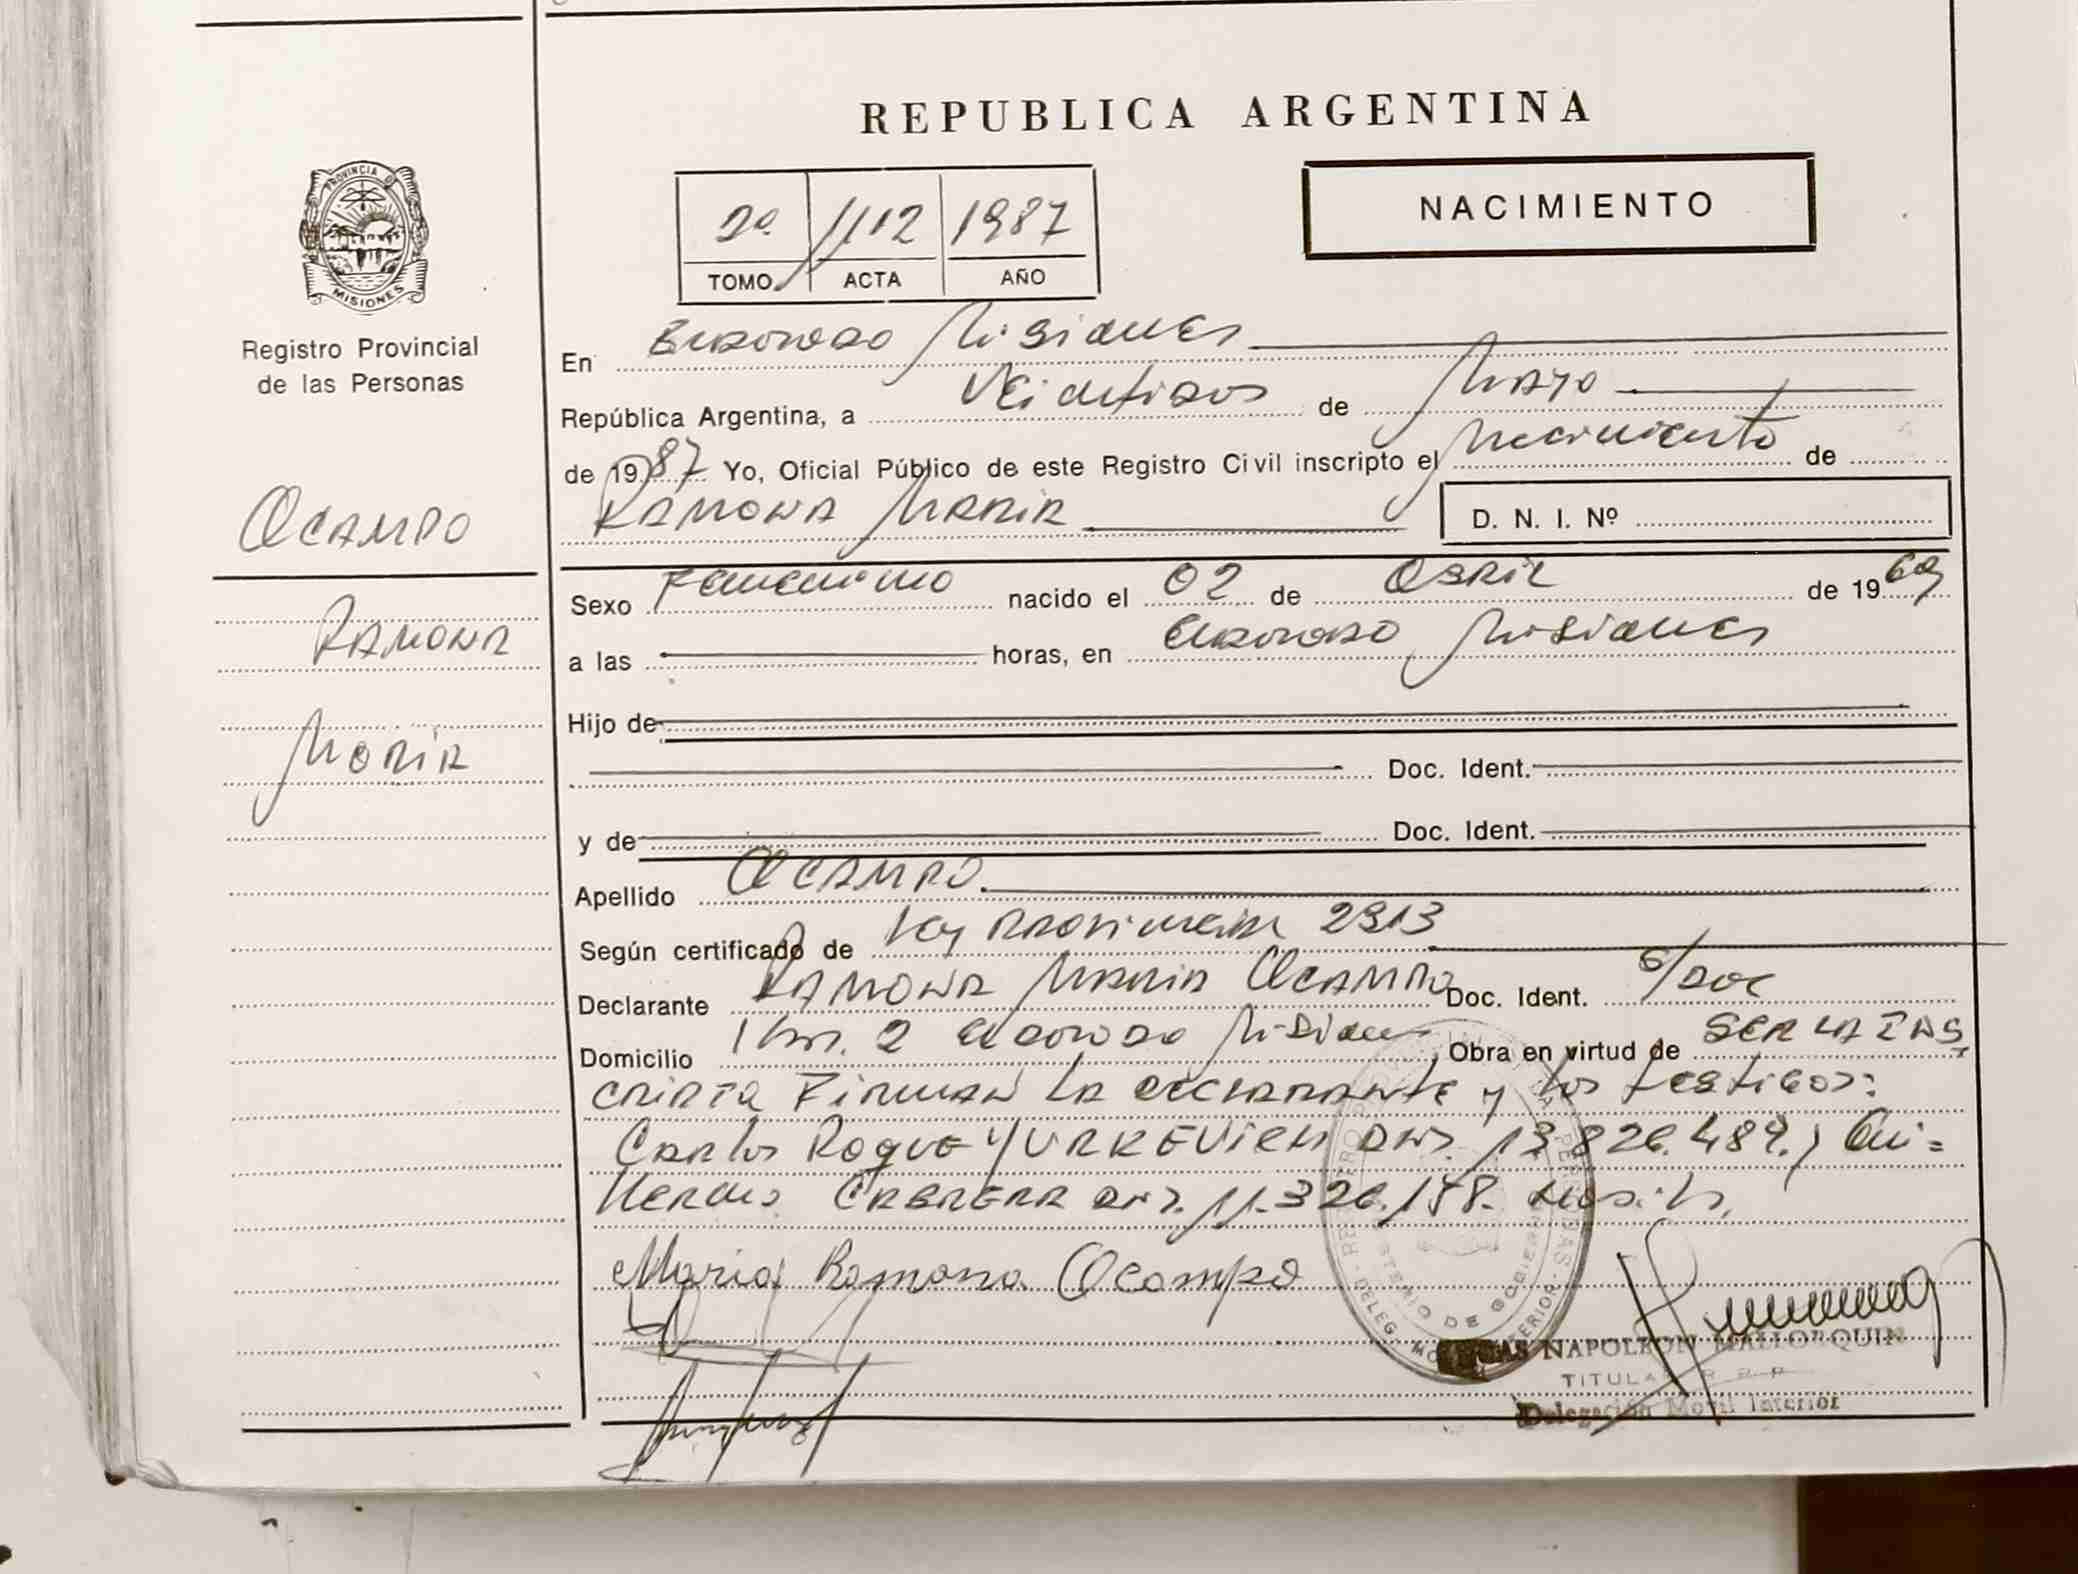 REPUBLICA ARGENTINA
NACIMIENTO
2º 1112 1987
TOMO ACTA AÑO
PROVINCIA D
MISIONES
Registro Provincial
de las Personas
OCAMPO
RAMONA
MARIA
En Eldorado Misiones
República Argentina, a Veintidos de Mayo
de 1987 Yo, Oficial Público de este Registro Civil inscripto el Nacimiento de
RAMONA MARIA
D. N. I. Nº
Sexo Femenino nacido el 02 de Abril de 1969
a las horas, en Eldorado Misiones
Hijo de
Doc. Ident.
y de Doc. Ident.
Apellido OCAMPO
Según certificado de Ley Provincial 2313
Declarante RAMONA MARIA OCAMPO Doc. Ident. S/DOC
Domicilio Km. 2 Eldorado Misiones Obra en virtud de SER LA INS
CRIPTA FIRMAN LA DECLARANTE y los testigos:
Carlos Roque YURKEVICH DNI. 13.826.489.,
CABRERA DNI. 11.326.178.
Maria Ramona Ocampo
NAPOLEON MALLORQUIN
TITULAR
Delegación Movil Interior